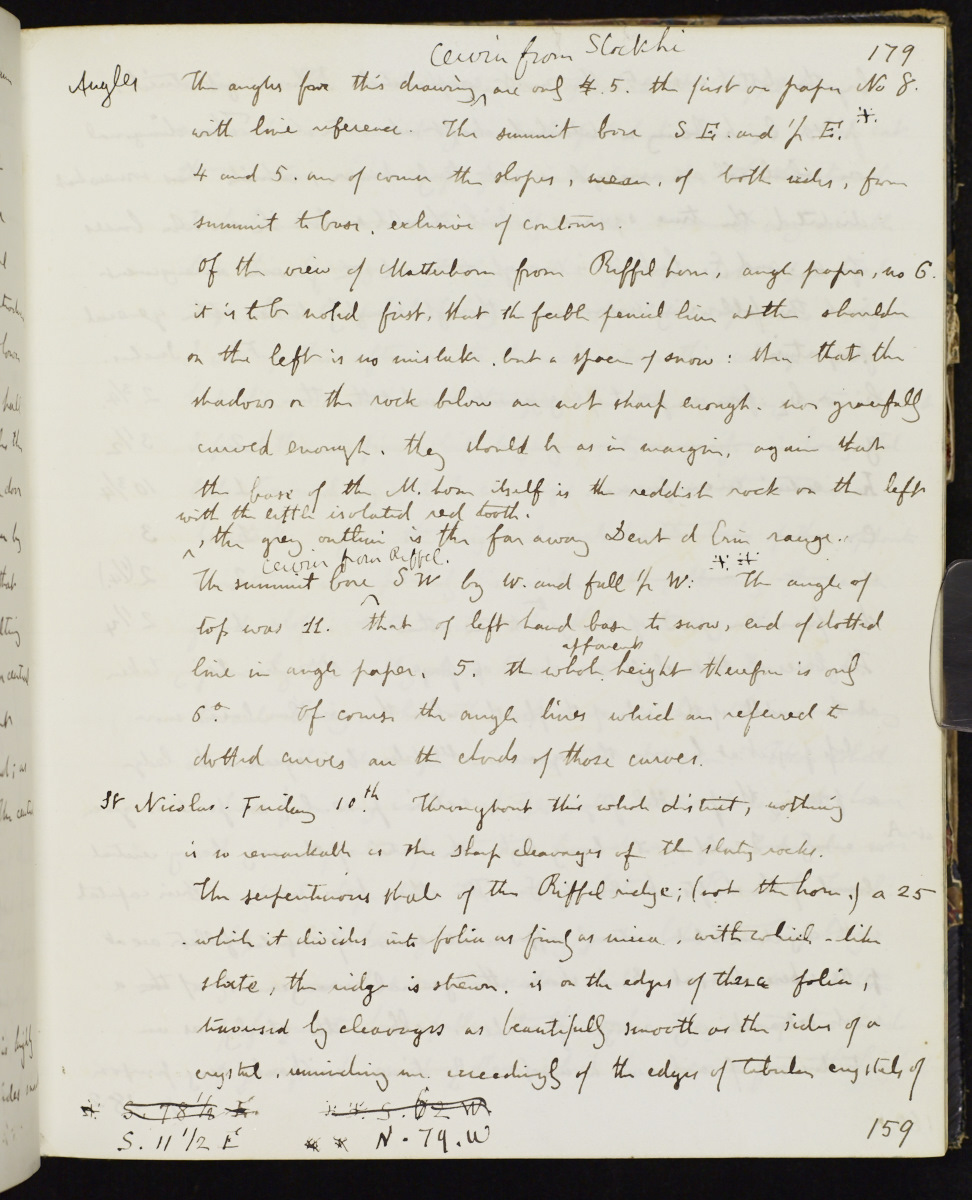 Cervin from Stockhi
179
Angles The angles for this drawing, are only 4. 5. the first on paper No 8.
with line reference. The summit bore S E. and ½ E. *.
4 and 5. are of course the slopes, mean, of both sides, from
summit to base, exclusive of contours.
Of the view of Matterhorn from Riffel horn, angle paper, no 6.
it is to be noted first, that the feeble pencil line at the shoulder
on the left is no mistake, but a space of snow: then that the
shadows on the rock below are not sharp enough. nor gracefully
curved enough. they should be as in margin, again that
the base of the M. horn itself is the reddish rock on the left
with the little isolated red tooth.
, the grey outline is the far away Dent d Erin range.
Cervin from Riffel.
The summit bore S W by W. and full ½ W: ** The angle of
top was 11. that of left hand base to snow, end of dotted
apparent
line in angle paper, 5. the whole height therefore is only
6°. Of course the angle lines which are referred to
dotted curves are the chords of those curves.
St Nicolas. Friday 10th Throughout this whole district, nothing
is so remarkable as the sharp cleavages of the slaty rocks.
The serpentinous shale of the Riffel ridge; (not the horn.) a 25
. which it divides into folia as fine as mica, with which - like
slate, the ridge is strewn, is on the edges of these folia,
traversed by cleavages as beautifully smooth as the sides of a
crystal, reminding me exceedingly of the edges of tabular crystals of
* S. 78½ E. ** S. 62 W
S. 11 1/2 E * * N. 79. W
159